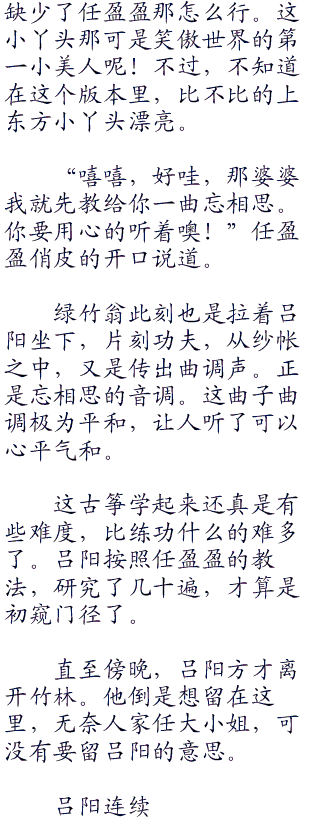 缺少了任盈盈那怎么行。这
小丫头那可是笑傲世界的第
一小美人呢！不过，不知道
在这个版本里，比不比的上
东方小丫头漂亮。
“嘻嘻，好哇，那婆婆
我就先教给你一曲忘相思。
你要用心的听着噢！”任盈
盈俏皮的开口说道。
绿竹翁此刻也是拉着吕
阳坐下，片刻功夫，从纱帐
之中，又是传出曲调声。正
是忘相思的音调。这曲子曲
调极为平和，让人听了可以
心平气和。
这古筝学起来还真是有
些难度，比练功什么的难多
了。吕阳按照任盈盈的教
法，研究了几十遍，才算是
初窥门径了。
直至傍晚，吕阳方才离
开竹林。他倒是想留在这
里，无奈人家任大小姐，可
没有要留吕阳的意思。
吕阳连续